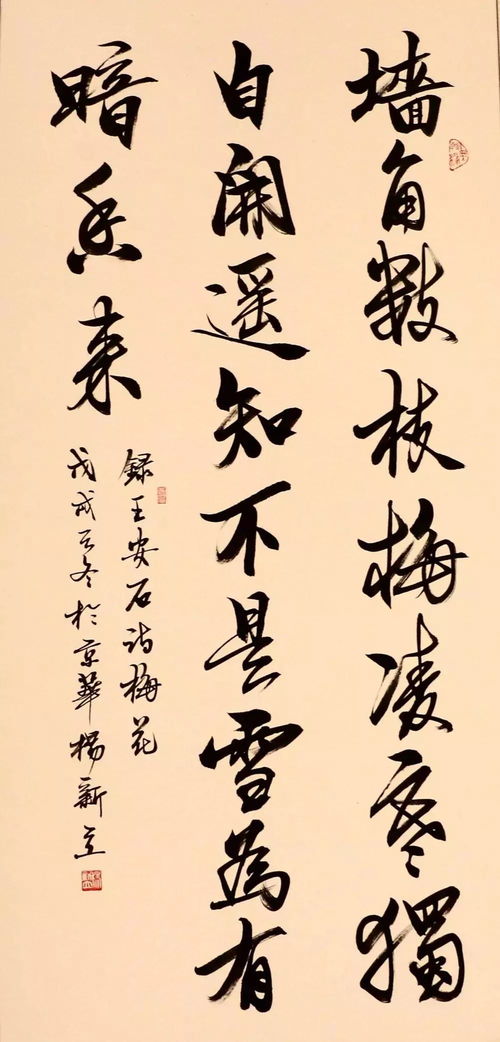 墙角数枝梅凌寒獨
自開遥知不是雪為有
暗香来
録王安石詩梅花
戊戌之冬於京華楊新立